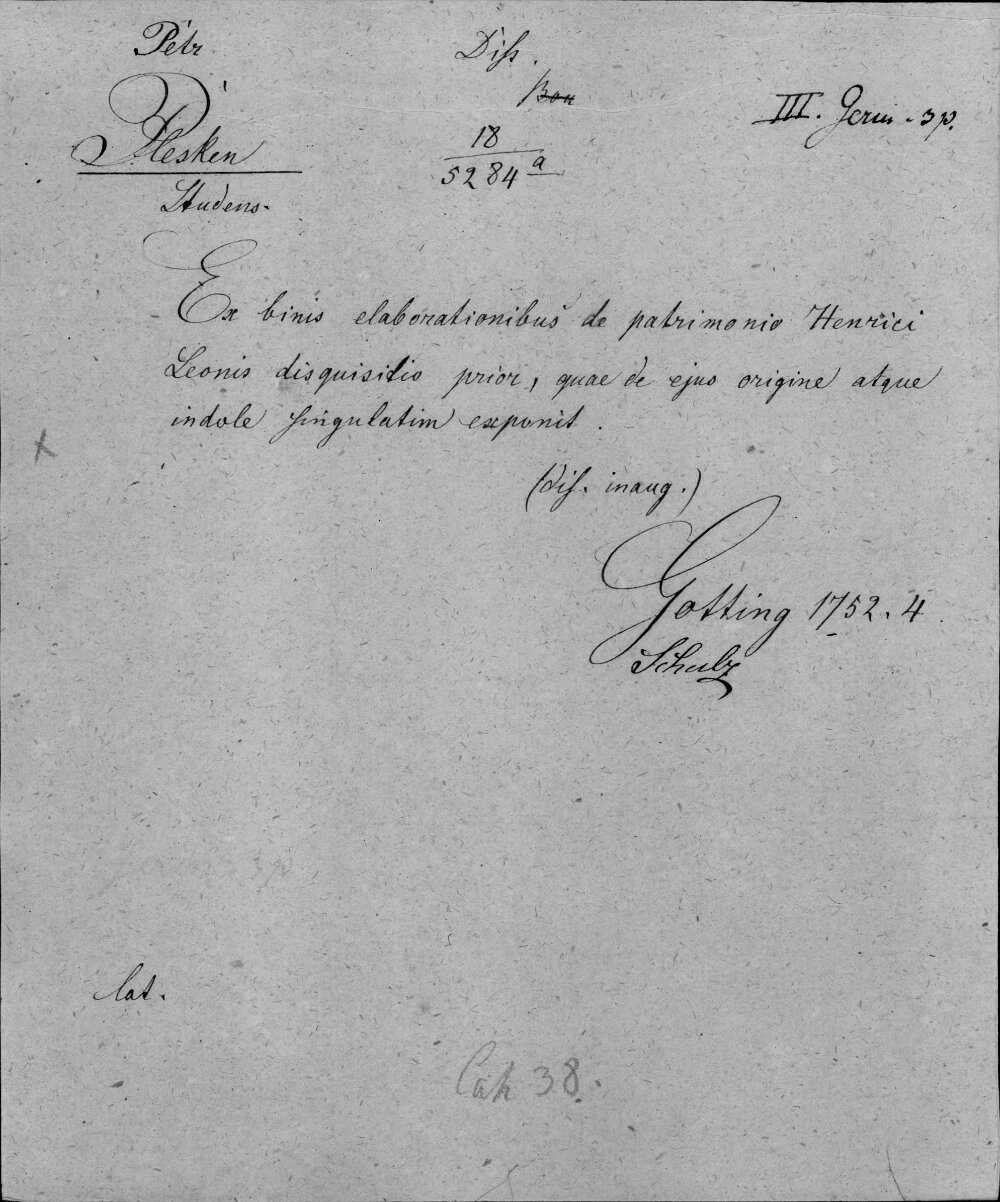 Petr
Plesken
Studens.
Diss.
18
5284 a
III. Germ. sp.
Ex binis elaborationibus de patrimonio Henrici
Leonis disquisitio prior, quae de ejus origine atque
indole singulatim exponit.
(diss. inaug.)
Gotting 1752. 4
Schulz
lat.
38.